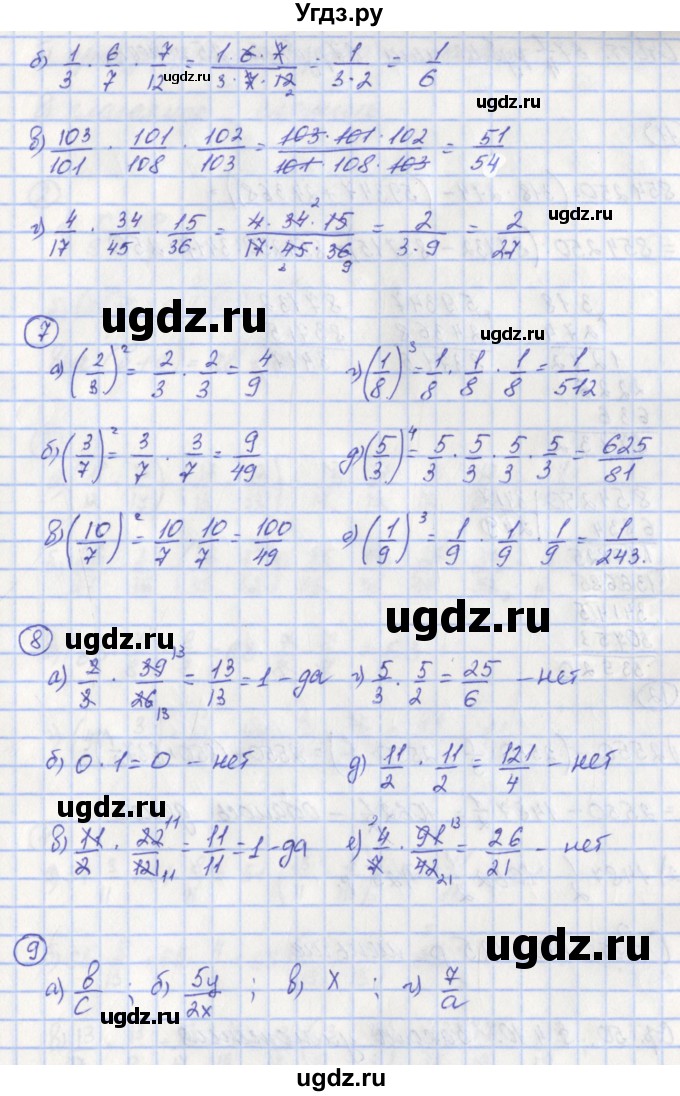 Угдз.ру
б) 1/3 · 6/7 · 7/12 = 1·6·7/3·7·12 2 = 1/3·2 = 1/6
ugdz.ru
ugdz.ru
в) 103/101 · 101/108 · 102/103 = 103·101·102/101·108·103 = 51/54
г) 4/17 · 34/45 · 15/36 = 4·34 2·15/17·45 2·36 9 = 2/3·9 = 2/27
ugdz.ru
7
ugdz.ru
ugdz.ru
а) (2/3)² = 2/3 · 2/3 = 4/9 г) (1/8)³ = 1/8 · 1/8 · 1/8 = 1/512
б) (3/7)² = 3/7 · 3/7 = 9/49 д) (5/3)⁴ = 5/3 · 5/3 · 5/3 · 5/3 = 625/81
в) (10/7)² = 10/7 · 10/7 = 100/49 е) (1/9)³ = 1/9 · 1/9 · 1/9 = 1/243.
ugdz.ru
8 ugdz.ru
а) 2/2 · 39 13/26 13 = 13/13 = 1 - да г) 5/3 · 5/2 = 25/6 - нет
б) 0 · 1 = 0 - нет д) 11/2 · 11/2 = 121/4 - нет
ugdz.ru
ugdz.ru
в) 11/2 · 22 11/121 11 = 11/11 = 1 - да е) 2 4/7 · 91 13/42 21 = 26/21 - нет
9
ugdz.ru
а) b/c ; б) 5y/2x ; в) x ; г) 7/a
ugdz.ru
ugdz.ru